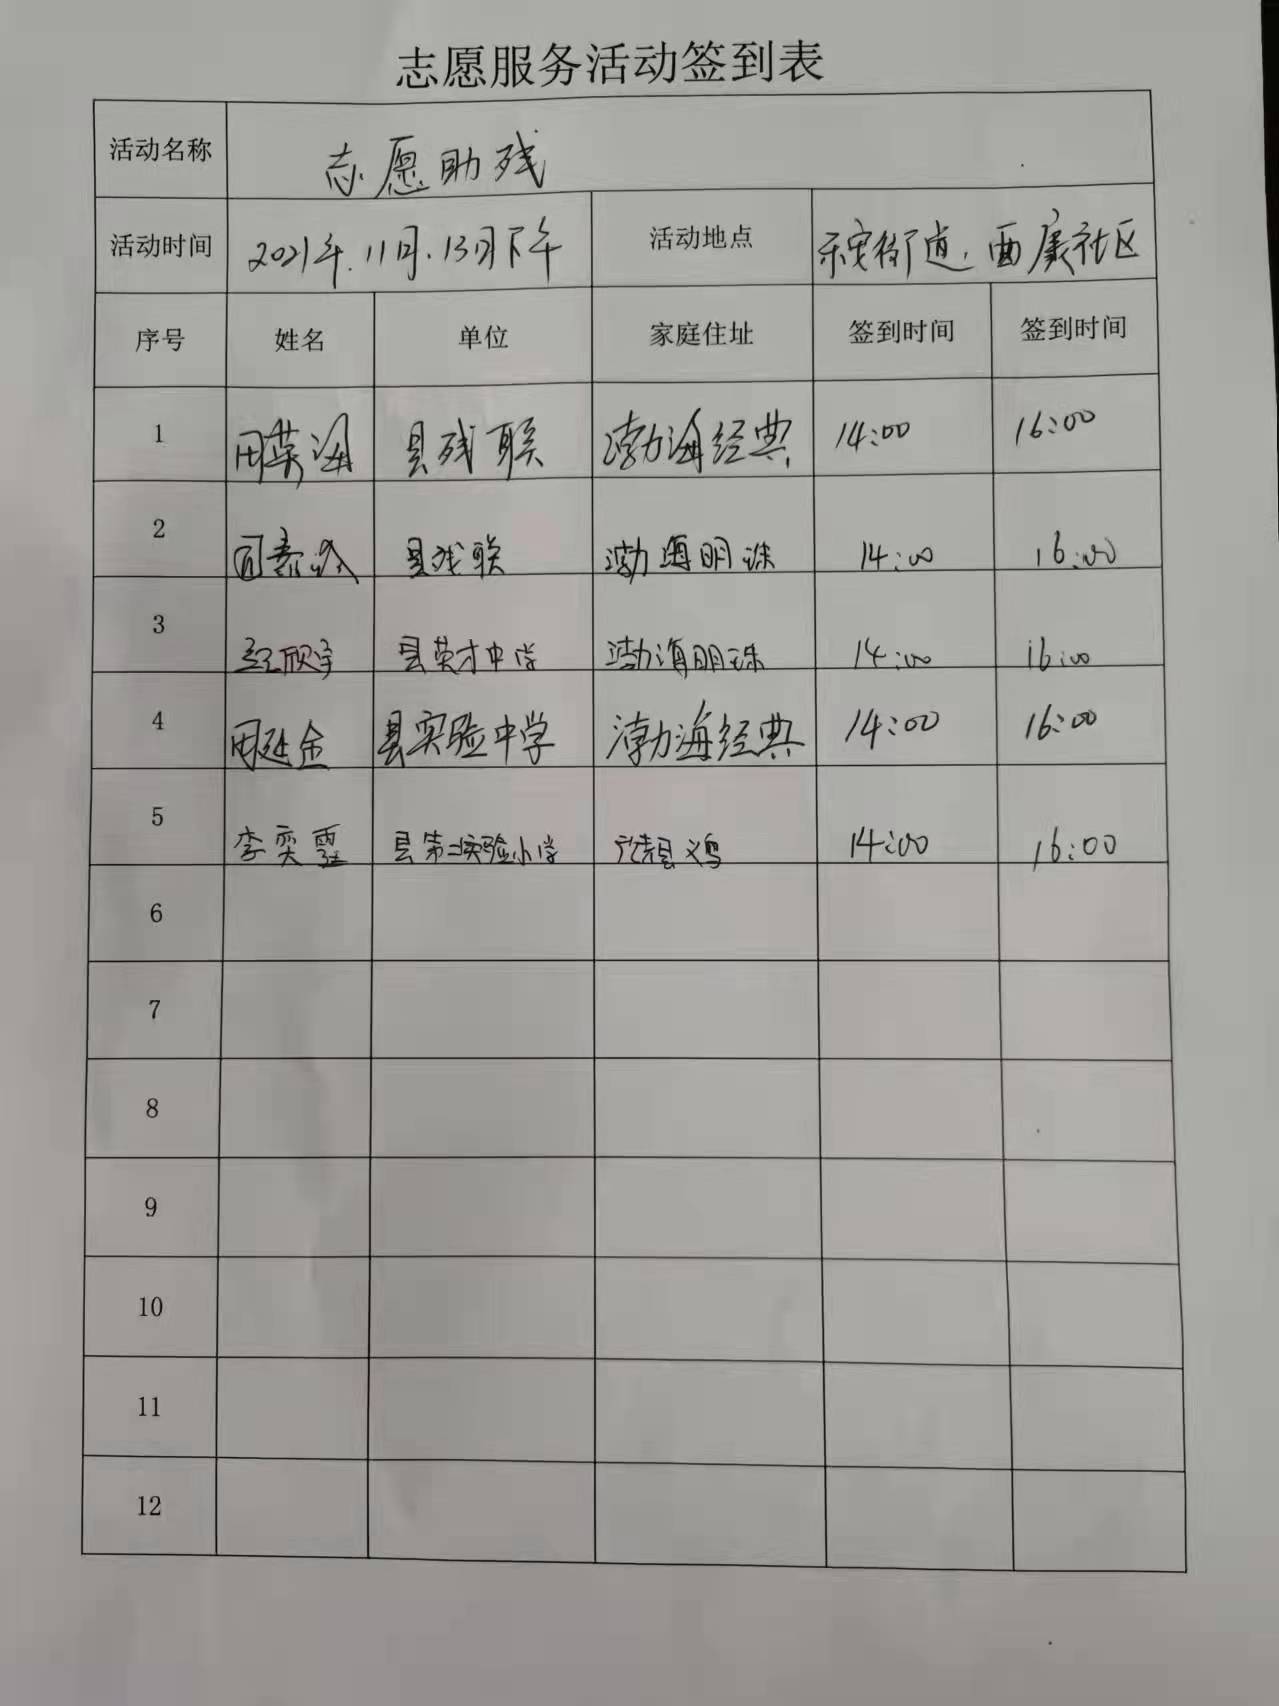 志愿服务活动签到表
活动名称 志愿助残
活动时间 2021年.11月.13日下午 活动地点 街道.西 社区
序号 姓名 单位 家庭住址 签到时间 签到时间
1 田英海 县残联 渤海经典 14:00 16:00
2 县残联 渤海明珠 14:00 16:00
3 欣宇 县英才中学 渤海明珠 14:00 16:00
4 田延金 县实验中学 渤海经典 14:00 16:00
5 李奕霆 县第二实验小学 14:00 16:00
6
7
8
9
10
11
12